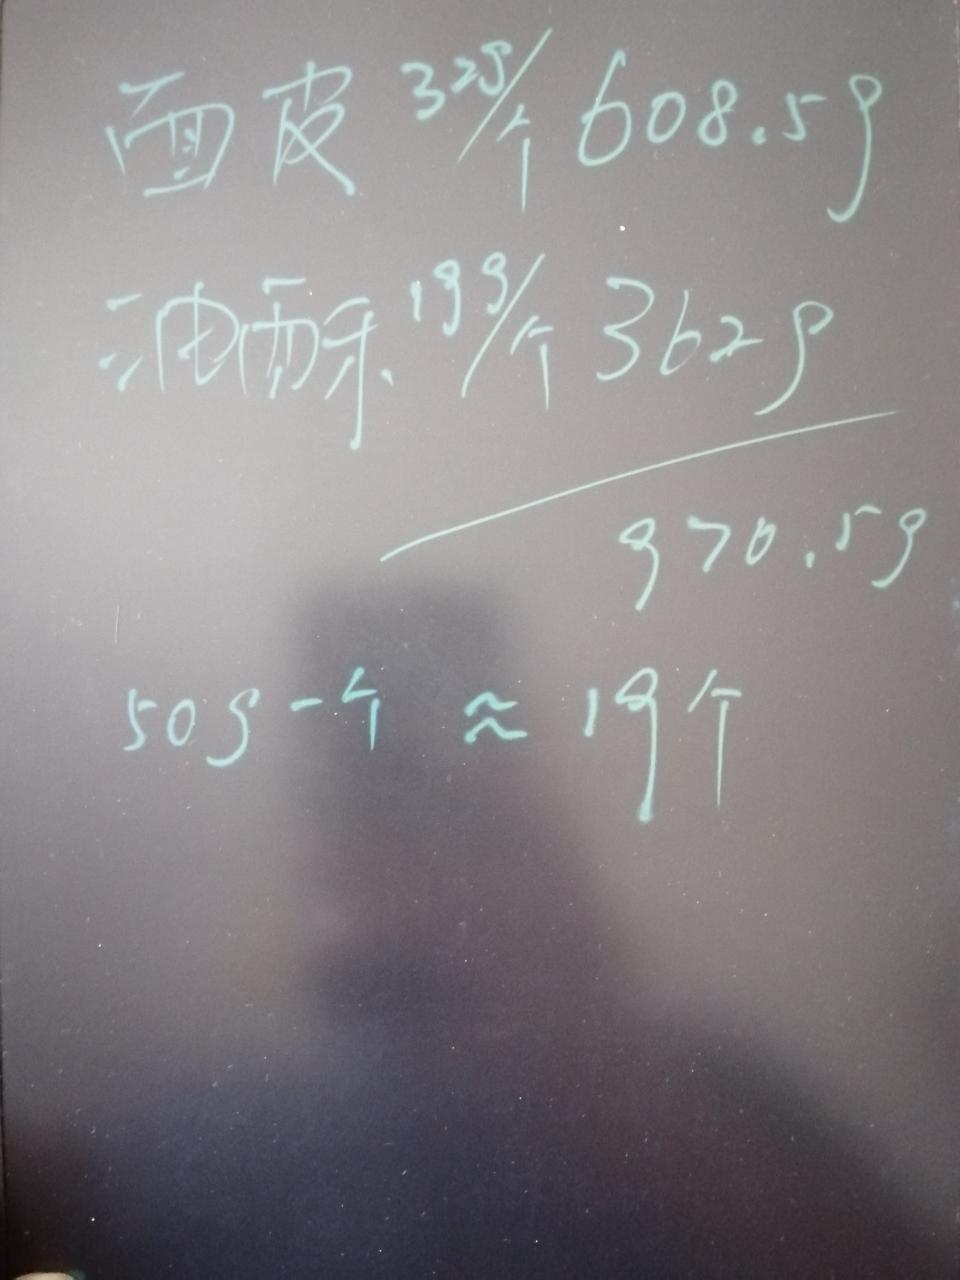 面皮 32g/个 608.5g
油酥 19g/个 362g
970.5g
50g一个 ≈ 19个